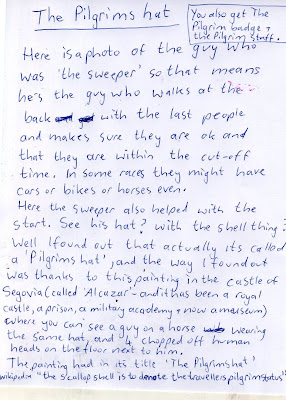 The Pilgrims hat
You also get The
Pilgrim badge +
the Pilgrim stuff.
Here is a photo of the guy who
was 'the sweeper' so that means
he's the guy who walks at the
back with the last people
and makes sure they are ok and
that they are within the cut-off
time. In some races they might have
cars or bikes or horses even.
Here the sweeper also helped with the
start. See his hat? with the shell thing?
Well I found out that actually its called
a 'Pilgrims hat', and the way I found out
was thanks to this painting in the castle of
Segovia (called 'Alcazar' - and it has been a royal
castle, a prison, a military academy + now a museum)
where you can see a guy on a horse wearing
the same hat, and 4 chopped off human
heads on the floor next to him.
The painting had in its title 'The Pilgrims hat'
wikipedia "the scallop shell is to denote the travellers pilgrim status"